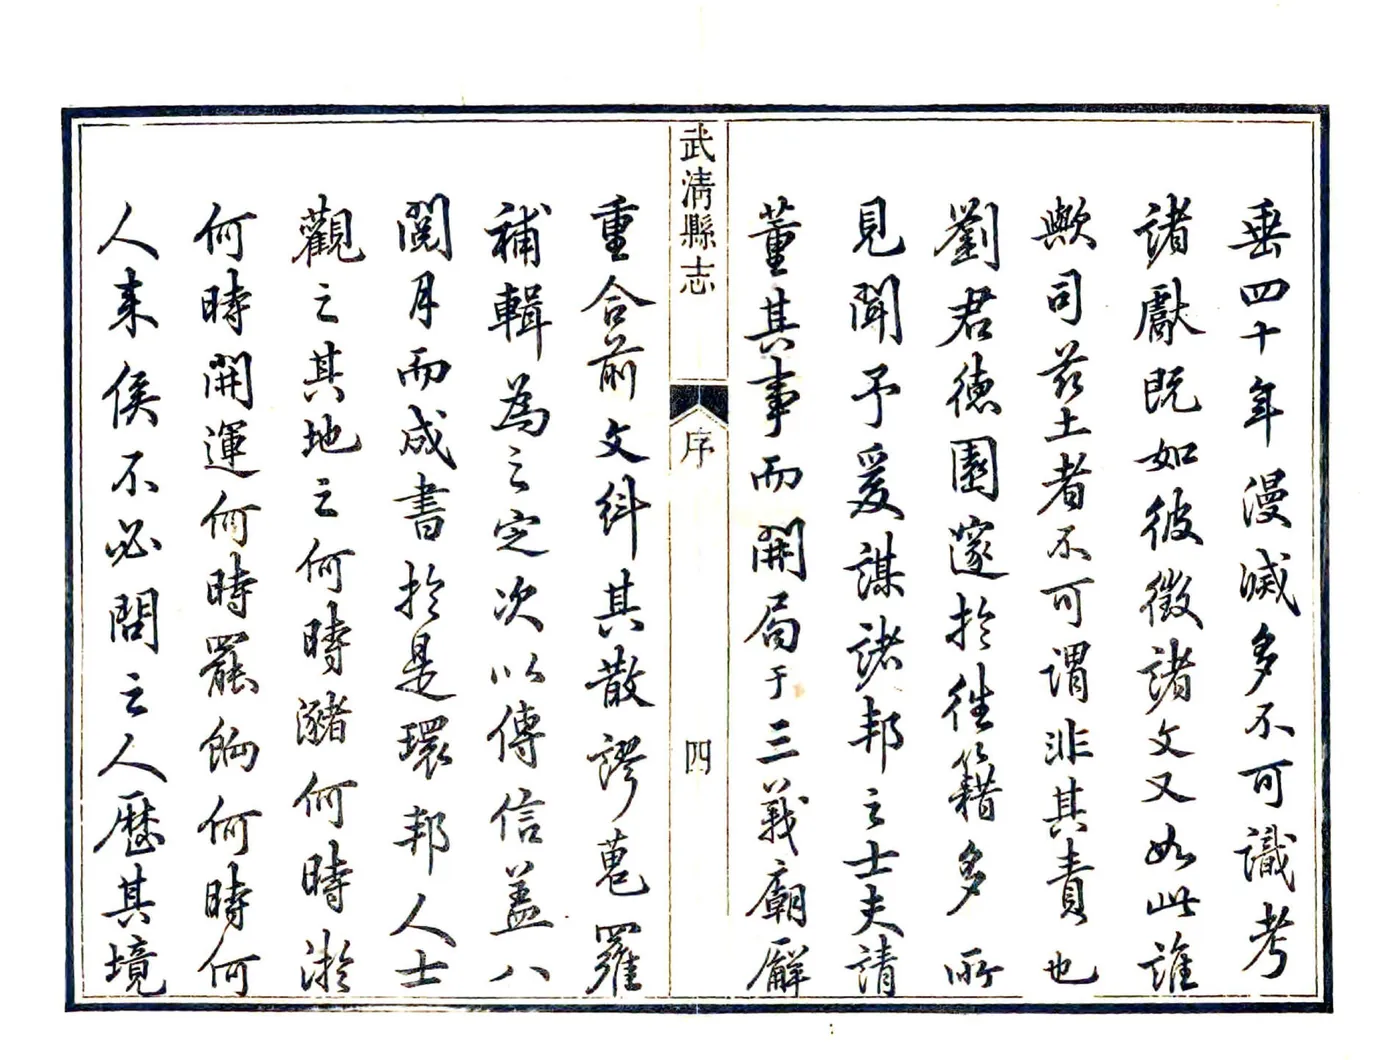 垂四十年漫滅多不可識考
諸獻既如彼徵諸文又如此誰
歟司茲土者不可謂非其責也
劉君德園邃於徃籍多所
見聞予爰謀諸邦之士夫請
董其事而開局于三義廟廨
武淸縣志
序
四
重合前文糾其散謬蒐羅
補輯為之定次以傳信盖八
閱月而成書於是環邦人士
觀之其地之何時瀦何時淤
何時開運何時罷餉何時何
人来侯不必問之人歷其境